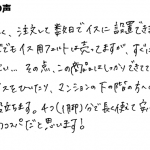 の声
しく、注文して数日でイスに設置できま
でもイス用フェルトは売ってますが、すぐに
い… その点、この商品はしっかりできてて
スをひいたり、マンションの下の階の方へ
役立ちます。4つ(1脚)など長く使えて安
コスパだと思います!